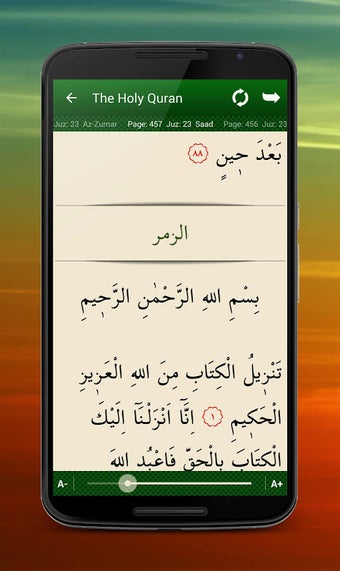 The Holy Quran
Juz: 23 Az-Zumar Page: 457 Juz: 23 Saad Page: 456 Juz: 23
بَعْدَ حٖينٍ ٨٨
الزمر
بِسْمِ اللهِ الرَّحْمٰنِ الرَّحٖيمِ
تَنْزٖيلُ الْكِتَابِ مِنَ اللهِ الْعَزٖيزِ
الْحَكٖيمِ ١ اِنَّٓا اَنْزَلْنَٓا اِلَيْكَ
الْكِتَابَ بِالْحَقِّ فَاعْبُدِ اللهَ
A- A+